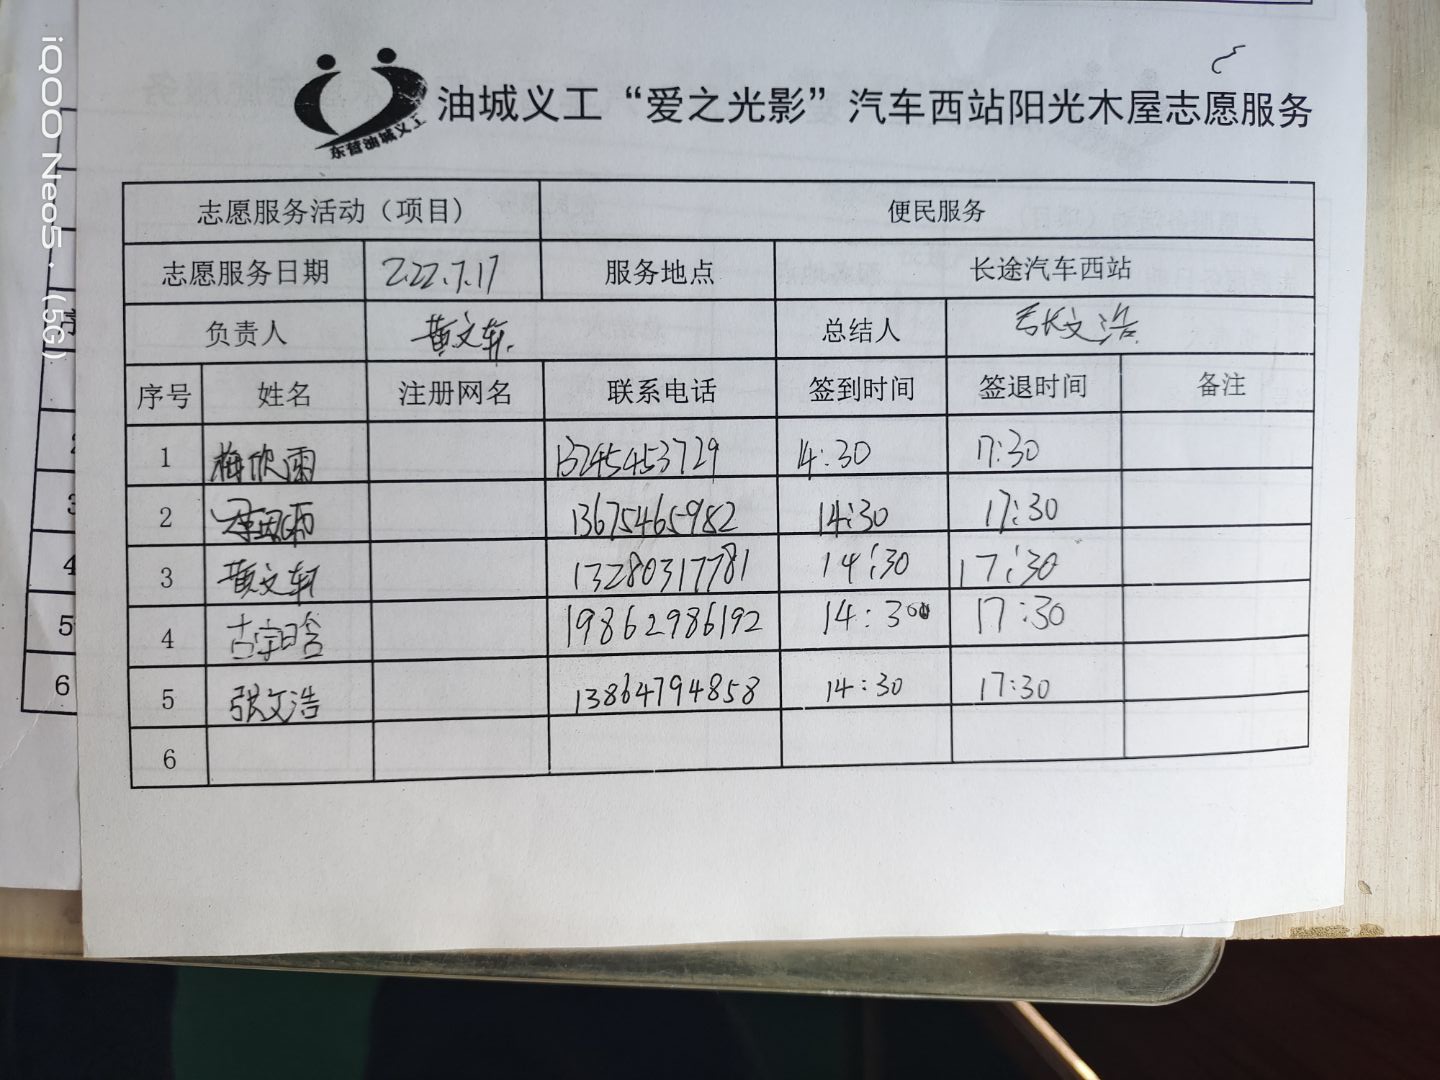 iQOO Neo5 · (5G)
东营油城义工
油城义工“爱之光影”汽车西站阳光木屋志愿服务
志愿服务活动（项目） 便民服务
志愿服务日期 2022.7.17 服务地点 长途汽车西站
负责人 黄文轩 总结人 张文浩
序号 姓名 注册网名 联系电话 签到时间 签退时间 备注
1 梅欣雨 13245453729 14:30 17:30
2 13675465982 14:30 17:30
3 黄文轩 13280317781 14:30 17:30
4 古宇晗 19862986192 14:30 17:30
5 张文浩 13864794858 14:30 17:30
6
4
5
6